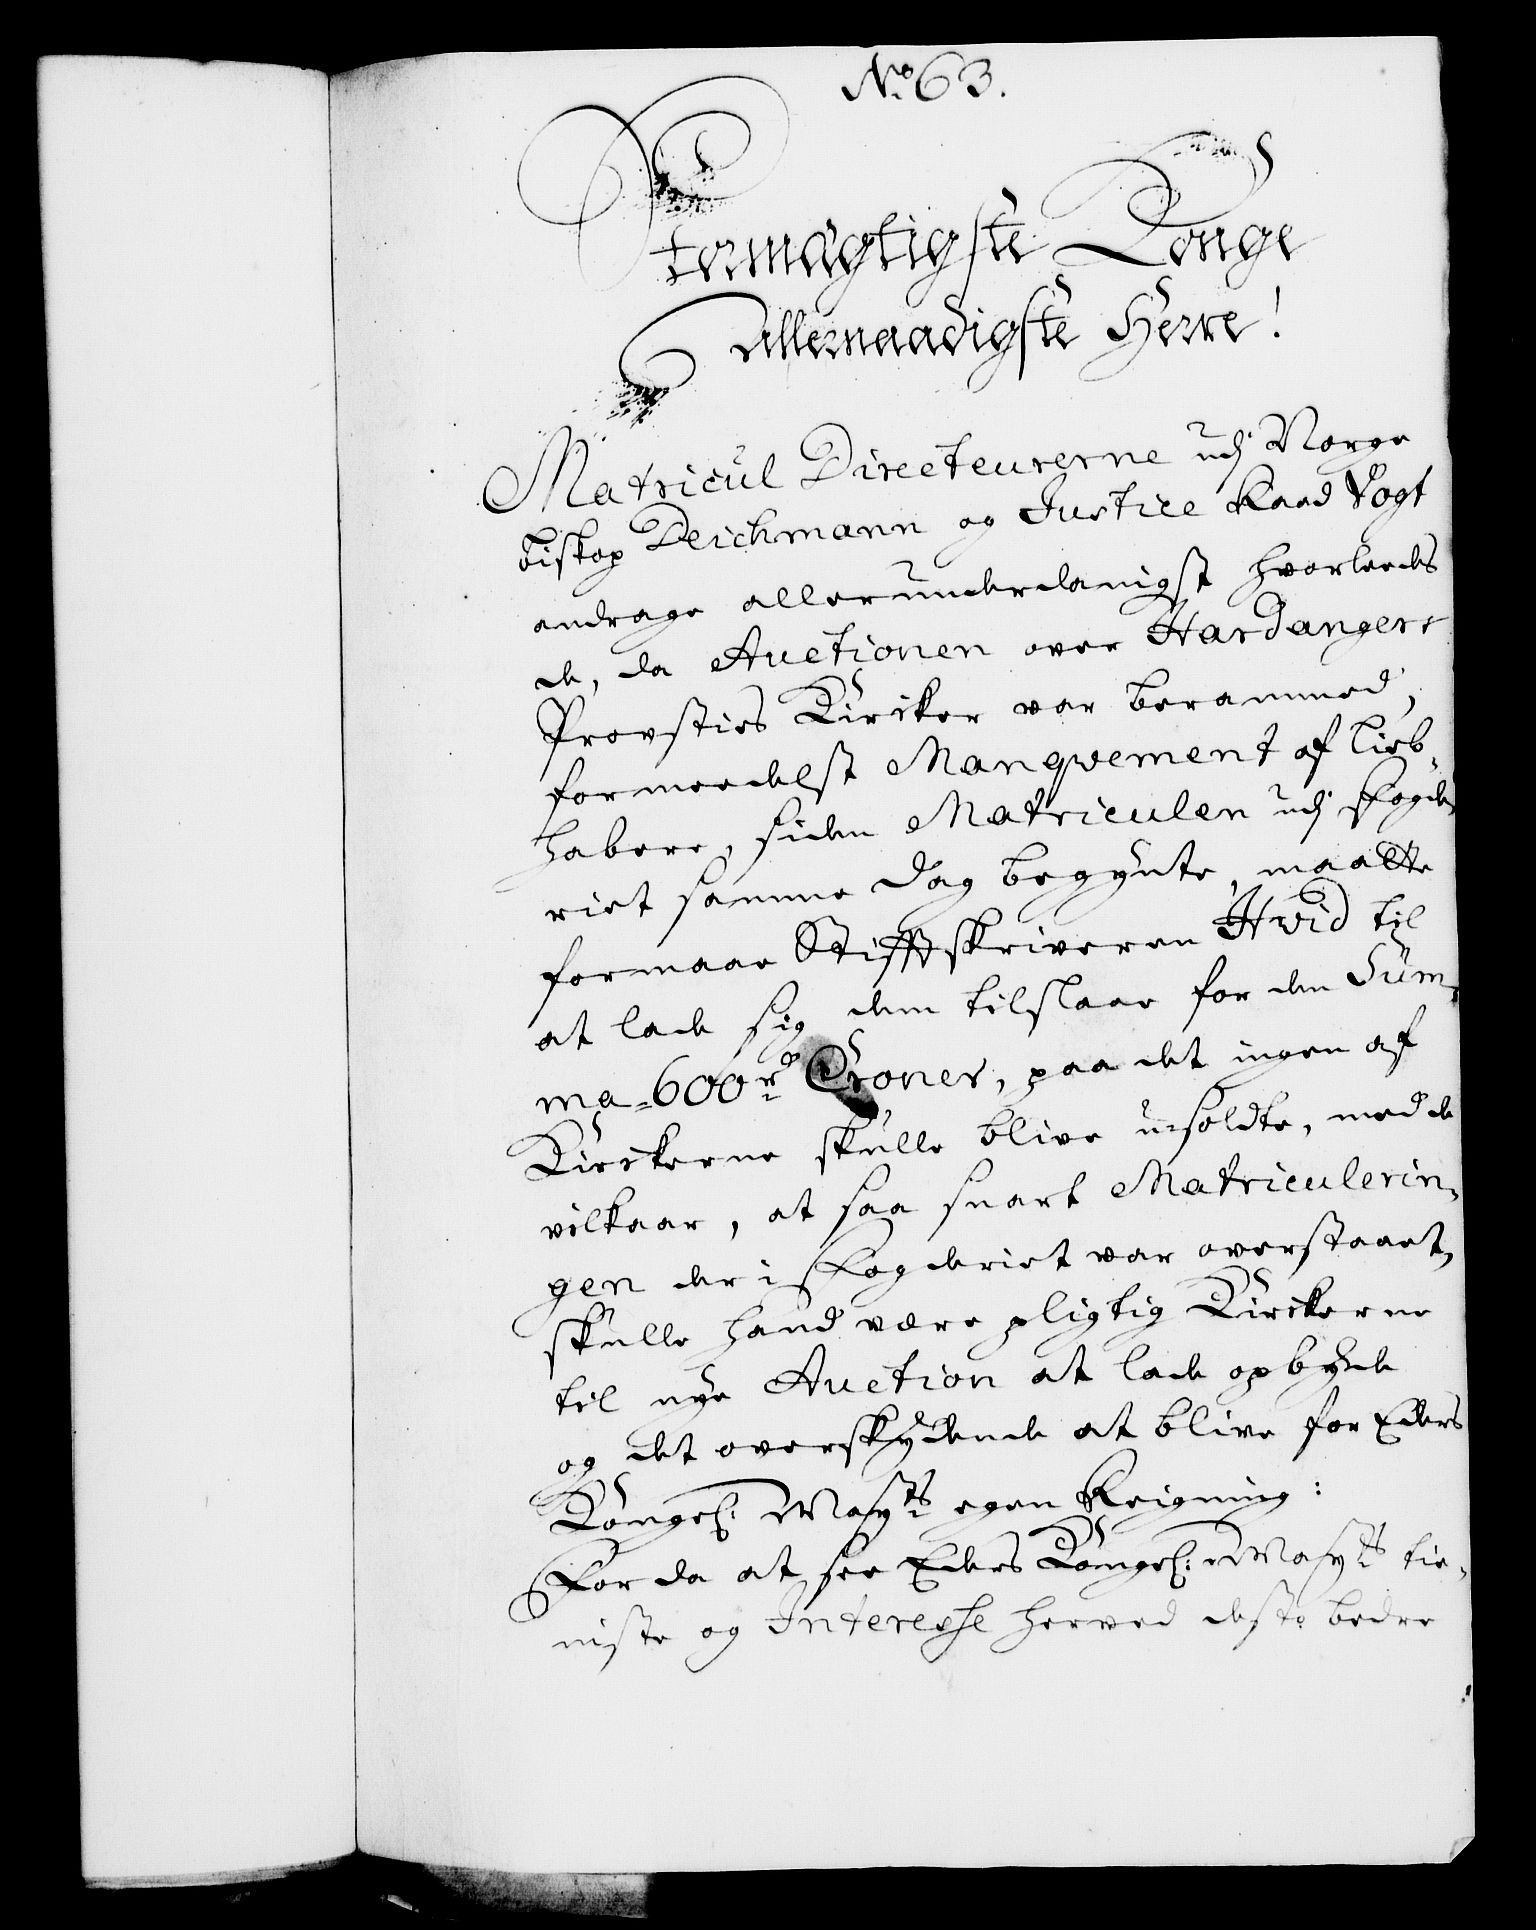 No 63.
Stormägtigste Konge
Allernaadigste Herre!
Matricul Directeurerne udj Norge
Biskop Deichmann og Justice Raad Vogt
andrage allerunderdanigst hvorleedes
de, da Auctionen over Hardangers
Provsties Kircker var berammed,
formedelst Manqvement af Lieb-
habere, siden Matriculen udj Fogde-
riet samme dag begynte, maatte
formaae Stifftskriveren Hvid til
at lade sig dem tilslaae for den Sum-
ma 600 rd Croner, paa det ingen af
Kirckerne skulle blive usoldte, med de
vilkaar, at saa snart Matriculerin-
gen der i Fogderiet var overstaaet,
skulle hand være pligtig Kirckerne
til nye Auction at lade opbyde
og det overskydende at blive for Eders
Kongel: Mayts egen Reigning:
For da at see Eders Kongel: Mayts tie-
niste og Interesse herved desto bedre